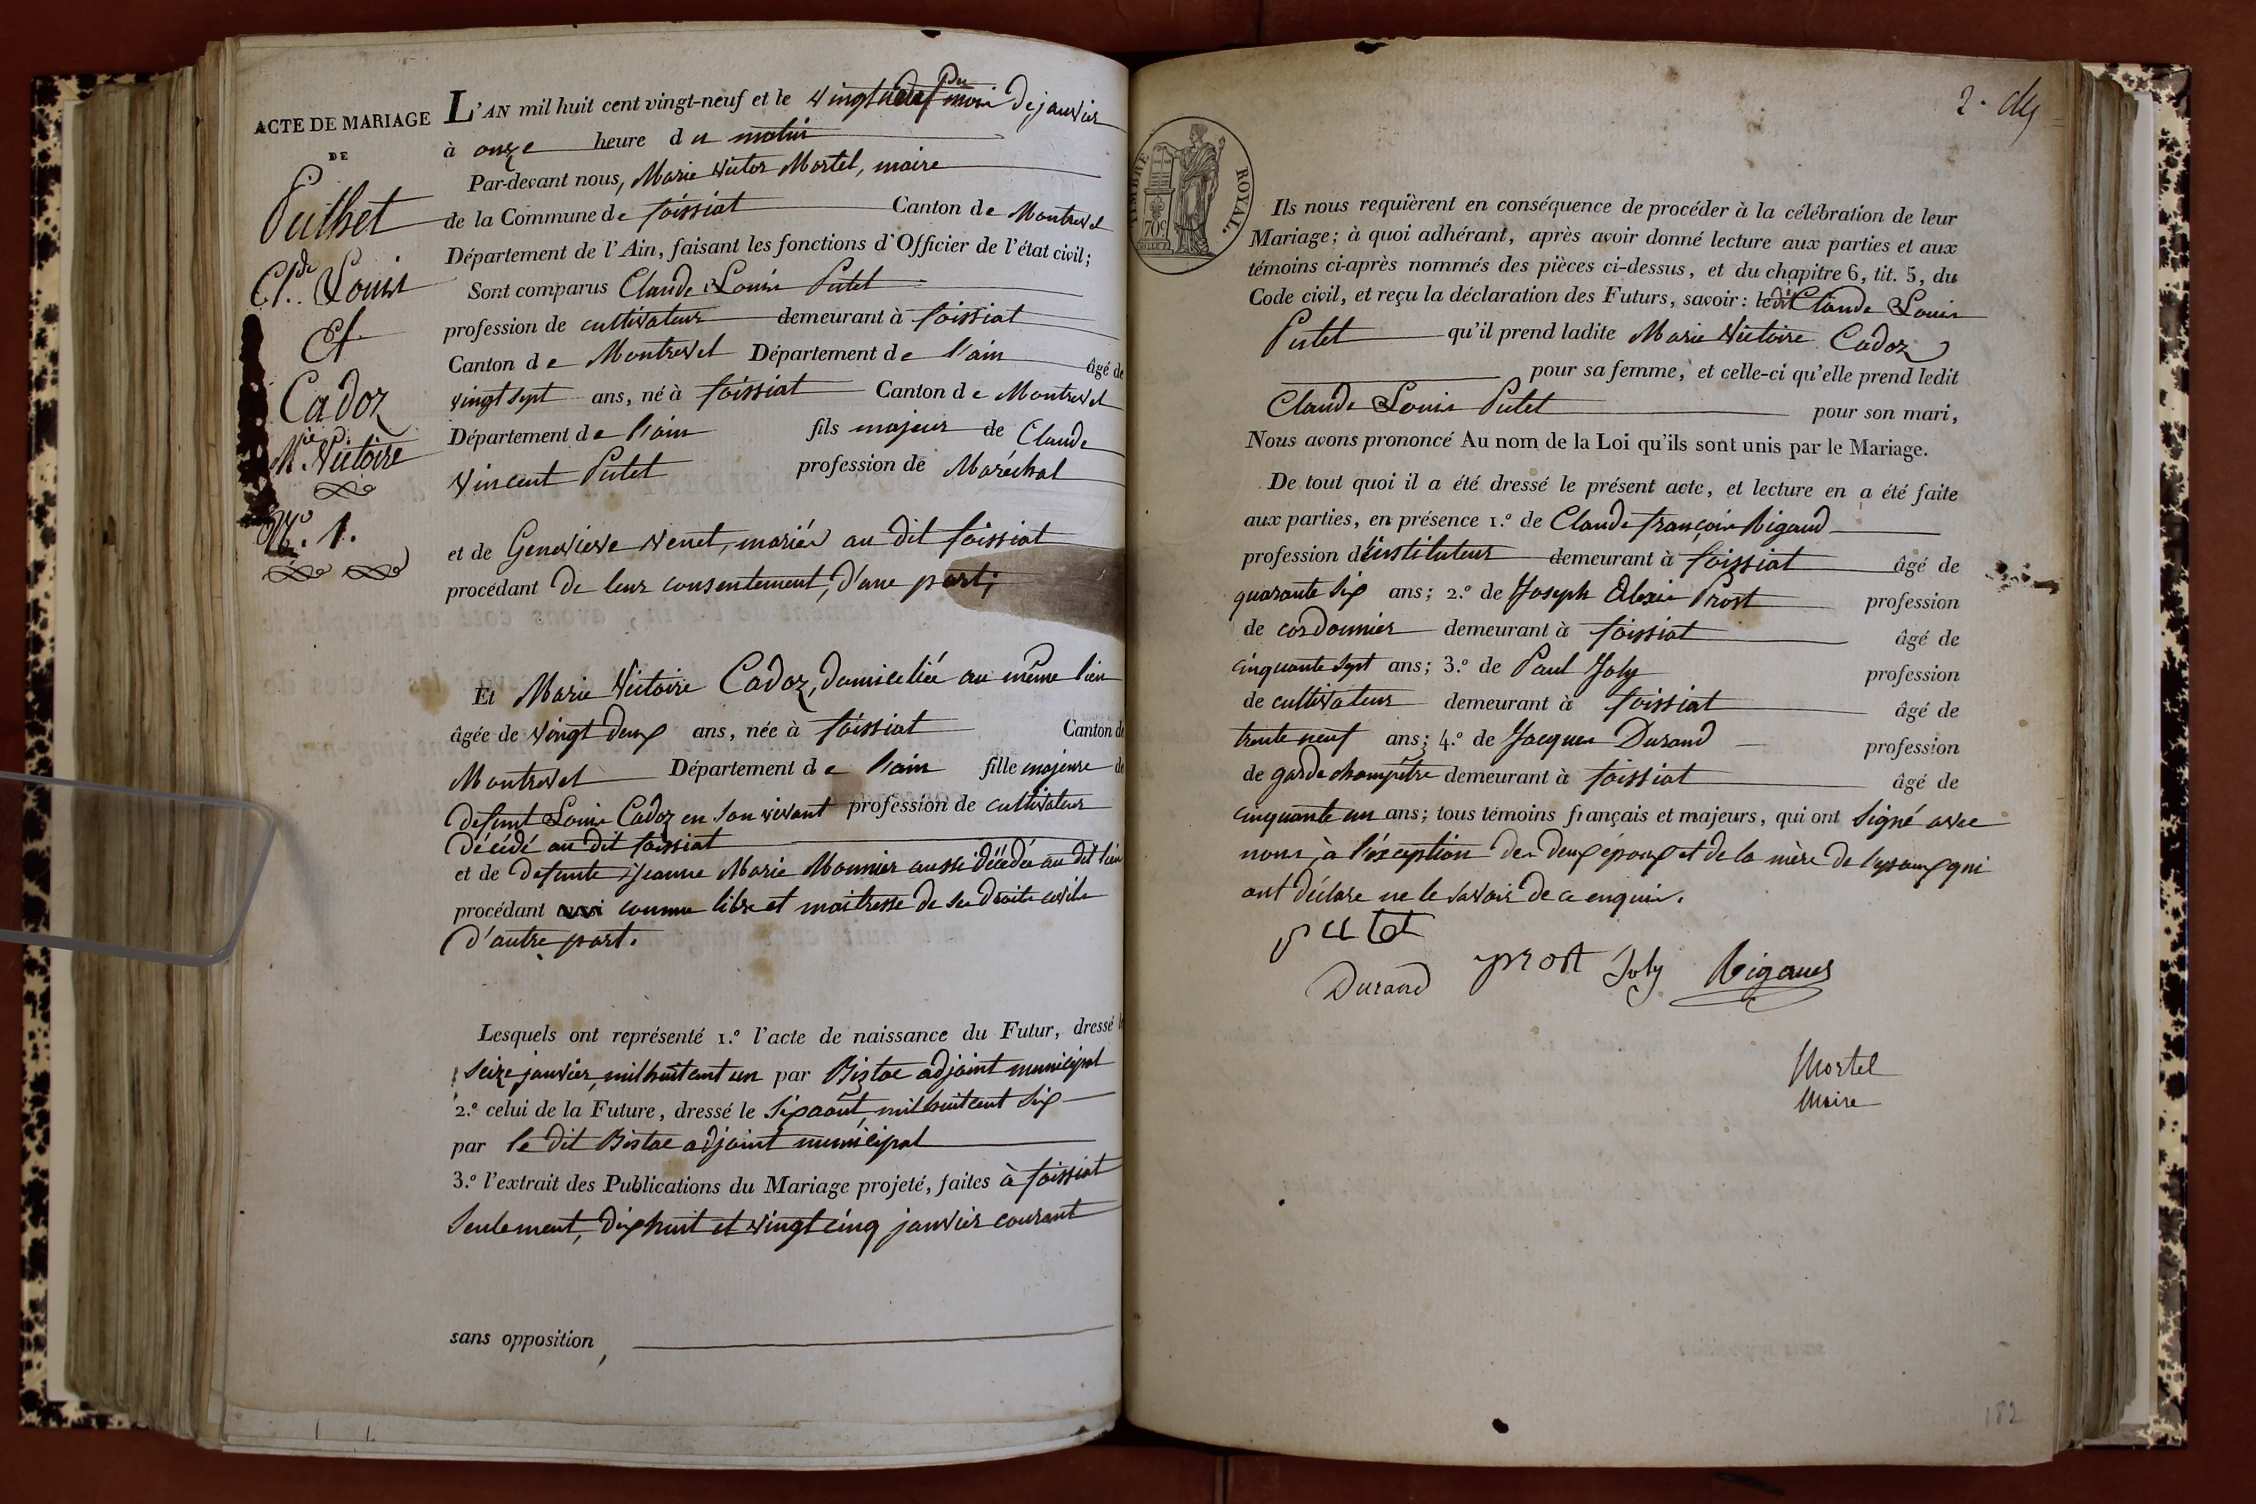 ACTE DE MARIAGE
DE
Puthet
Cl.de Louis
Et
Cadoz
M.ie Victoire
N.o 1.
L'AN mil huit cent vingt-neuf et le vingt neuf du mois de janvier
à onze heure du matin
Par-devant nous, Marie Victor Mortel, maire
de la Commune de foissiat Canton de Montrevel
Département de l'Ain, faisant les fonctions d'Officier de l'état civil;
Sont comparus Claude Louis Putet
profession de cultivateur demeurant à foissiat
Canton de Montrevel Département de l'ain âgé de
vingt sept ans, né à foissiat Canton de Montrevel
Département de l'ain fils majeur de Claude
Vincent Putet profession de Maréchal
et de Genevieve Venet, mariés au dit foissiat
procédant de leur consentement, d'une part;
Et Marie Victoire Cadoz, domiciliée au même lieu
âgée de vingt deux ans, née à foissiat Canton de
Montrevel Département de l'ain fille majeure de
defunt Louis Cadoz en son vivant profession de cultivateur
décédé au dit foissiat
et de defunte Jeanne Marie Monnier aussi décédée au dit lieu
procédant comme libre et maitresse de ses droits civils
d'autre part.
Lesquels ont représenté 1.º l'acte de naissance du Futur, dressé le
seize janvier, mil huit cent un par Bistac adjoint municipal
2.º celui de la Future, dressé le six août, mil huit cent six
par le dit Bistac adjoint municipal
3.º l'extrait des Publications du Mariage projeté, faites à foissiat
seulement, dix huit et vingt cinq janvier courant
sans opposition,
2.
TIMBRE ROYAL
70c
Ils nous requièrent en conséquence de procéder à la célébration de leur
Mariage; à quoi adhérant, après avoir donné lecture aux parties et aux
témoins ci-après nommés des pièces ci-dessus, et du chapitre 6, tit. 5, du
Code civil, et reçu la déclaration des Futurs, savoir: ledit Claude Louis
Putet qu'il prend ladite Marie Victoire Cadoz
pour sa femme, et celle-ci qu'elle prend ledit
Claude Louis Putet pour son mari,
Nous avons prononcé Au nom de la Loi qu'ils sont unis par le Mariage.
De tout quoi il a été dressé le présent acte, et lecture en a été faite
aux parties, en présence 1.º de Claude françois Rigaud
profession d'instituteur demeurant à foissiat âgé de
quarante six ans; 2.º de Joseph Alexis Prost profession
de cordonnier demeurant à foissiat âgé de
cinquante sept ans; 3.º de Paul Joly profession
de cultivateur demeurant à foissiat âgé de
trente neuf ans; 4.º de Jacques Durand profession
de garde champêtre demeurant à foissiat âgé de
cinquante un ans; tous témoins français et majeurs, qui ont signé avec
nous, à l'éxception des deux époux et de la mère de l'epoux qui
ont déclaré ne le savoir de ce enquis.
putet
Durand prost Joly Rigaud
Mortel
Maire
182